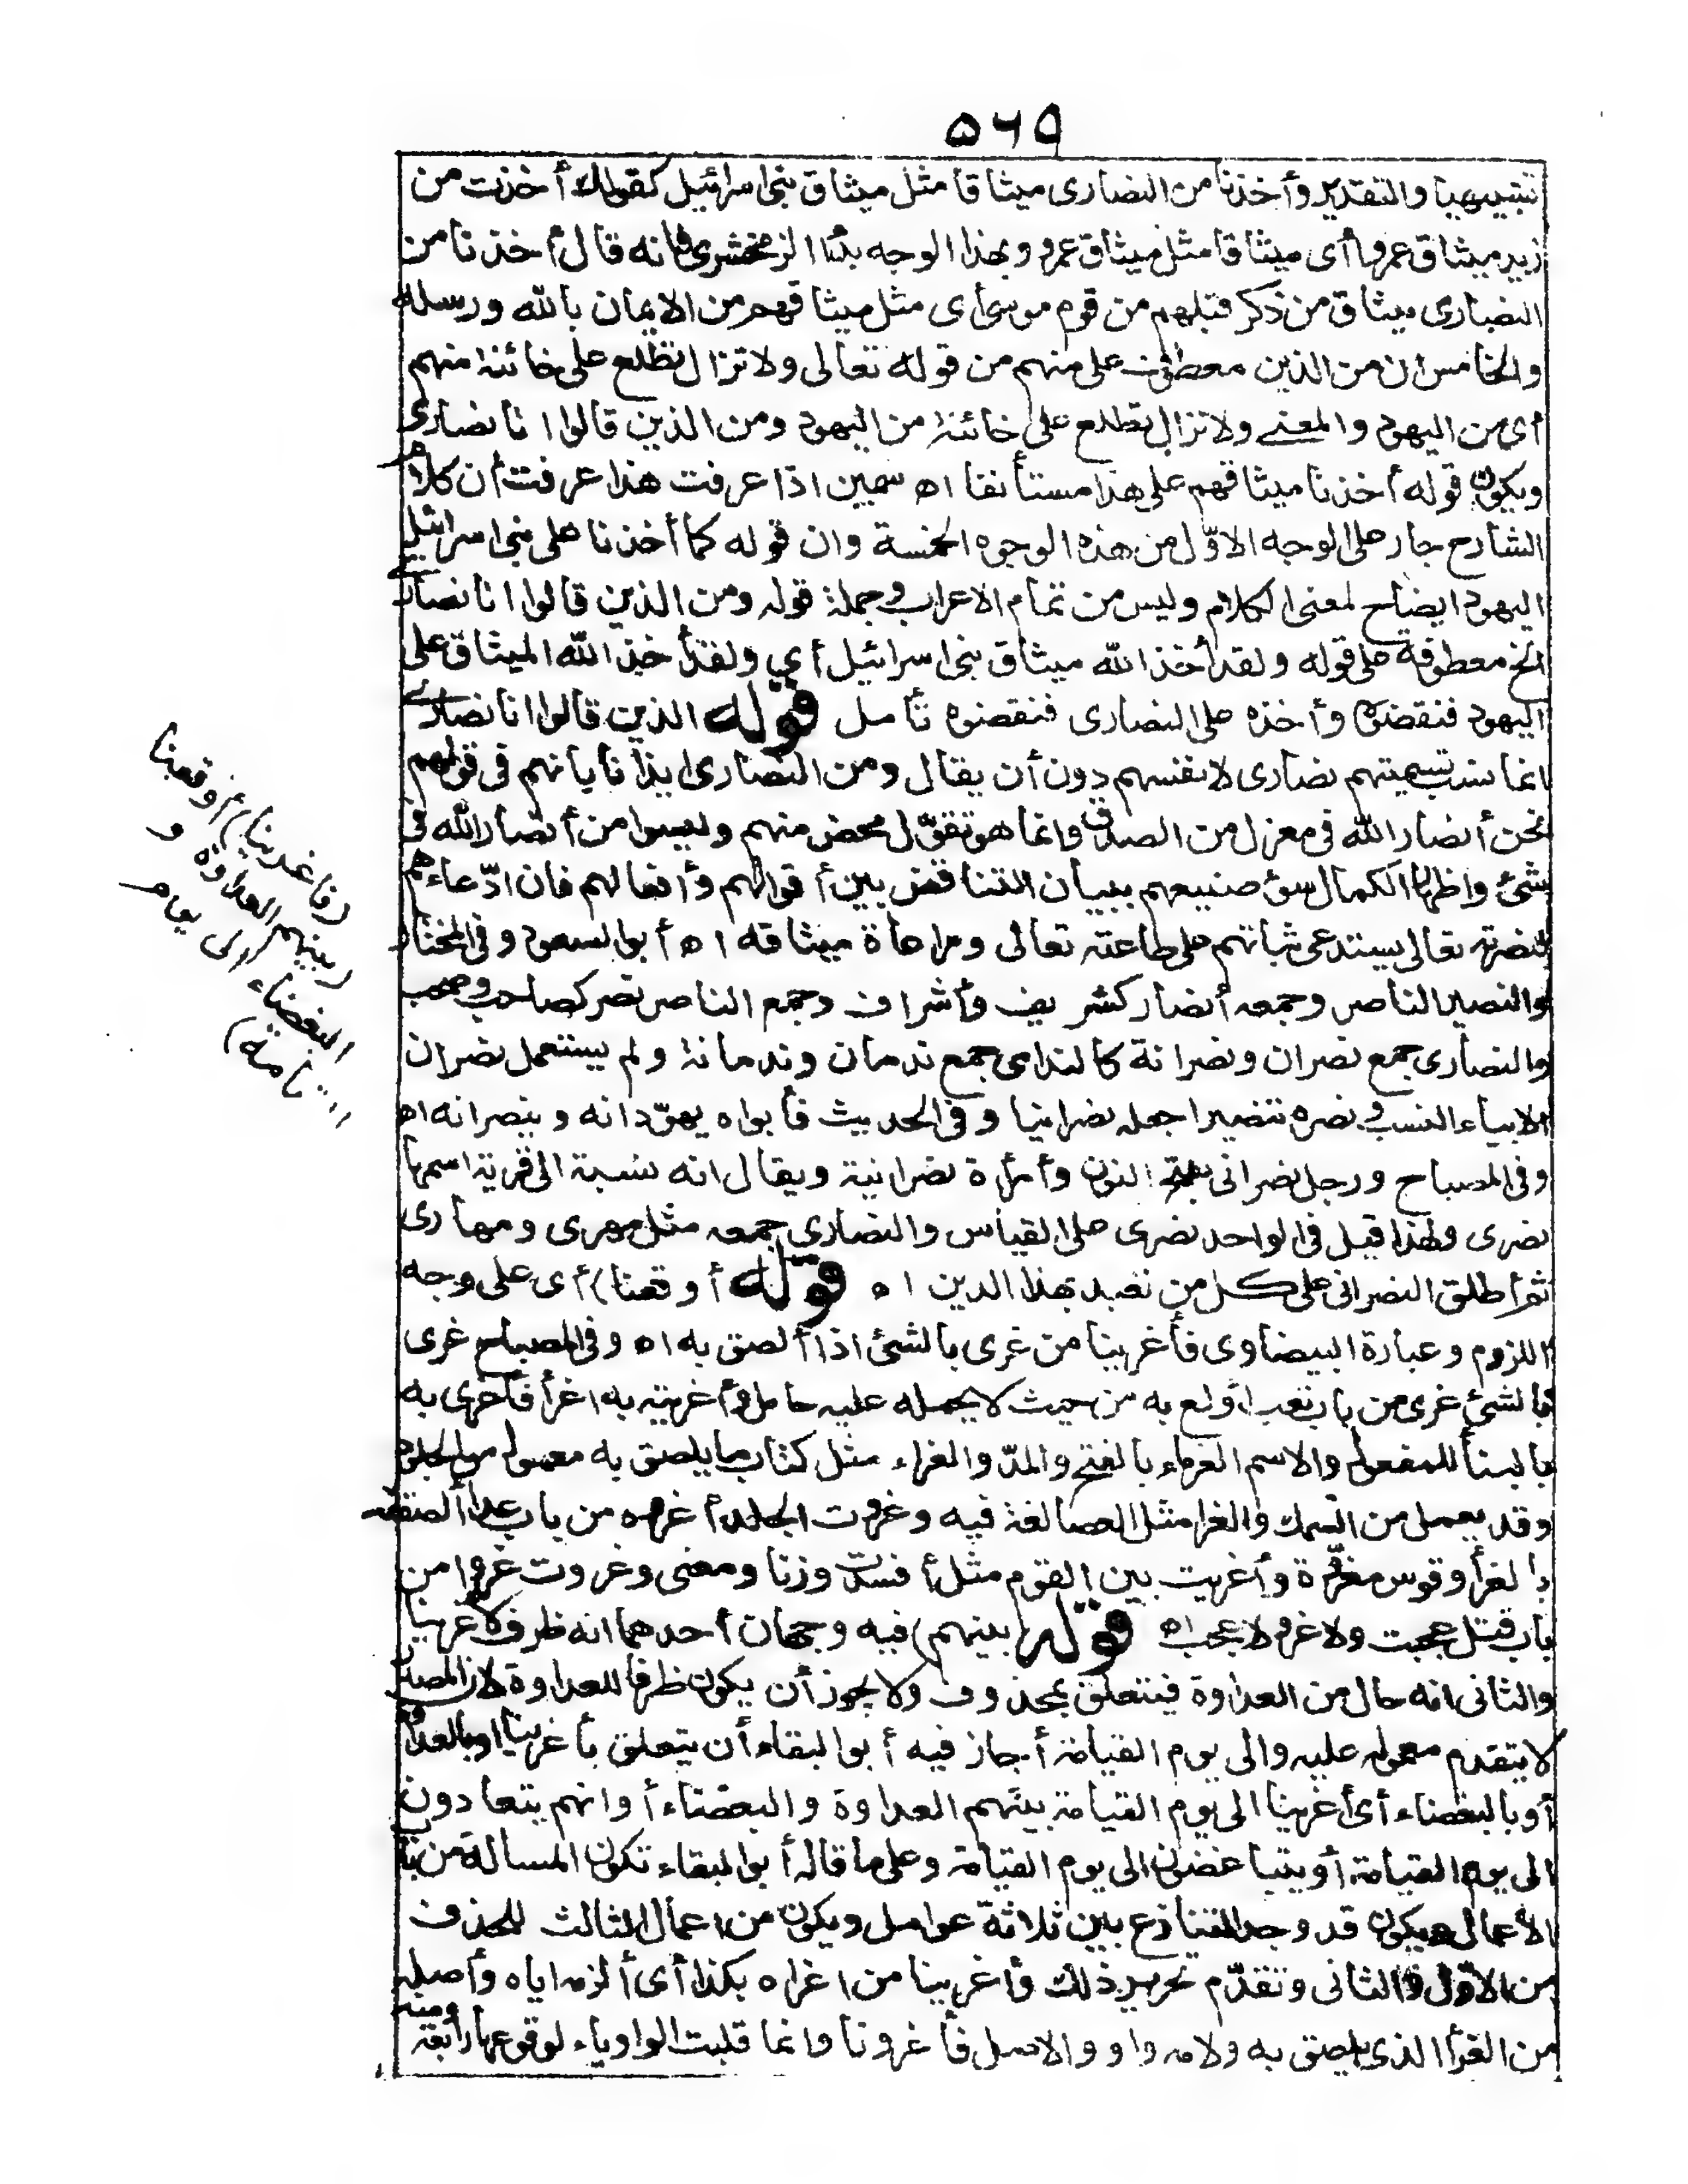 ٥٦٩
تشبيهيا والتقدير وأخذنا من النصارى ميثاقا مثل ميثاق بنى اسرائيل كقولك أخذت من
زيد ميثاق عمرو أى ميثاقا مثل ميثاق عمرو وبهذا الوجه بدأ الزمخشرى فانه قال أخذنا من
النصارى ميثاق من ذكر قبلهم من قوم موسى أى مثل ميثاقهم من الايمان بالله ورسله
والخامس ان من الذين معطوف على منهم من قوله تعالى ولا تزال تطلع على خائنة منهم
أى من اليهود والمعنى ولا تزال تطلع على خائنة من اليهود ومن الذين قالوا انا نصارى
ويكون قوله أخذنا ميثاقهم على هذا مستأنفا اه سمين اذا عرفت هذا عرفت أن كلام
الشارح جار على الوجه الاوّل من هذه الوجوه الخمسة وان قوله كما أخذنا على بنى اسرائيل
اليهود ايضاح لمعنى الكلام وليس من تمام الاعراب وجملة قوله ومن الذين قالوا انا نصارى
الخ معطوفة على قوله ولقد أخذ الله ميثاق بنى اسرائيل أي ولقد أخذ الله الميثاق على
اليهود فنقضوه وأخذه على النصارى فنقضوه تأمل قوله الذين قالوا انا نصارى
انما نسب تسميتهم نصارى لانفسهم دون أن يقال ومن النصارى ايذانا بانهم فى قولهم
نحن أنصار الله فى معزل من الصدق وانما هو تقوّل محض منهم وليسوا من أنصار الله فى
شئ واظهارا لكمال سوء صنيعهم ببيان التناقض بين أقوالهم وأفعالهم فان ادّعاءهم
لنصرته تعالى يستدعى ثباتهم على طاعته تعالى ومراعاة ميثاقه اه أبو السعود وفى المختار
والنصير الناصر وجمعه أنصار كشريف وأشراف وجمع الناصر نصر كصاحب وصحب
والنصارى جمع نصران ونصرانة كالندامى جمع ندمان وندمانة ولم يستعمل نصران
الا بياء النسب ونصره تنصيرا جعله نصرانيا وفى الحديث فأبواه يهوّدانه وينصرانه اه
وفى المصباح ورجل نصرانى بفتح النون وأمرأة نصرانية ويقال انه نسبة الى قرية اسمها
نصرى ولهذا قيل فى الواحد نصرى على القياس والنصارى جمعه مثل مهرى ومهارى
ثم أطلق النصرانى على كل من تعبد بهذا الدين اه قوله أوقعنا) أى على وجه
اللزوم وعبارة البيضاوى فأغرينا من غرى بالشئ اذا ألصق به اه وفى المصباح غرى
بالشئ غرى من باب تعب أولع به من حيث لا يحمله عليه حامل وأغريته به اغرأ فأغرى به
بالبنأ للمفعول والاسم الغراء بالفتح والمدّ والغراء مثل كتاب ما يلصق به معمول من الجلود
وقد يعمل من السمك والغرا مثل العصا لغة فيه وغروت الجلد أغروه من باب عدا ألصقته
بالغرأ وقوس مغروّة وأغريت بين القوم مثل أفسدت وزنا ومعنى وغروت غروا من
باب قتل عجبت ولا غرو لا عجب اه قوله (بينهم) فيه وجهان أحدهما انه ظرف لاغرينا
والثانى انه حال من العداوة فيتعلق بمحذوف ولا يجوز أن يكون ظرفا للعداوة لان المصدر
لا يتقدم معموله عليه والى يوم القيامة أجاز فيه أبو البقاء أن يتعلق بأغرينا او بالعداوة
أو بالبغضاء أى أغرينا الى يوم القيامة بينهم العداوة والبغضاء أو انهم يتعادون
الى يوم القيامة أو يتباغضون الى يوم القيامة وعلى ما قاله أبو البقاء تكون المسالة من باب
الاعمال ويكون قد وجد التنازع بين ثلاثة عوامل ويكون من اعمال الثالث للحذف
من الاوّل والثانى وتقدّم تحرير ذلك وأغرينا من اغراه بكذا أى ألزمه اياه وأصله
من الغرأ الذى يلصق به ولامه واو والاصل فأغرونا وانما قلبت الواو ياء لوقوعها رابعة
ومنه
(فاغرينا) أوقعنا
(بينهم العداوة و
البغضاء الى يوم
القيامة)